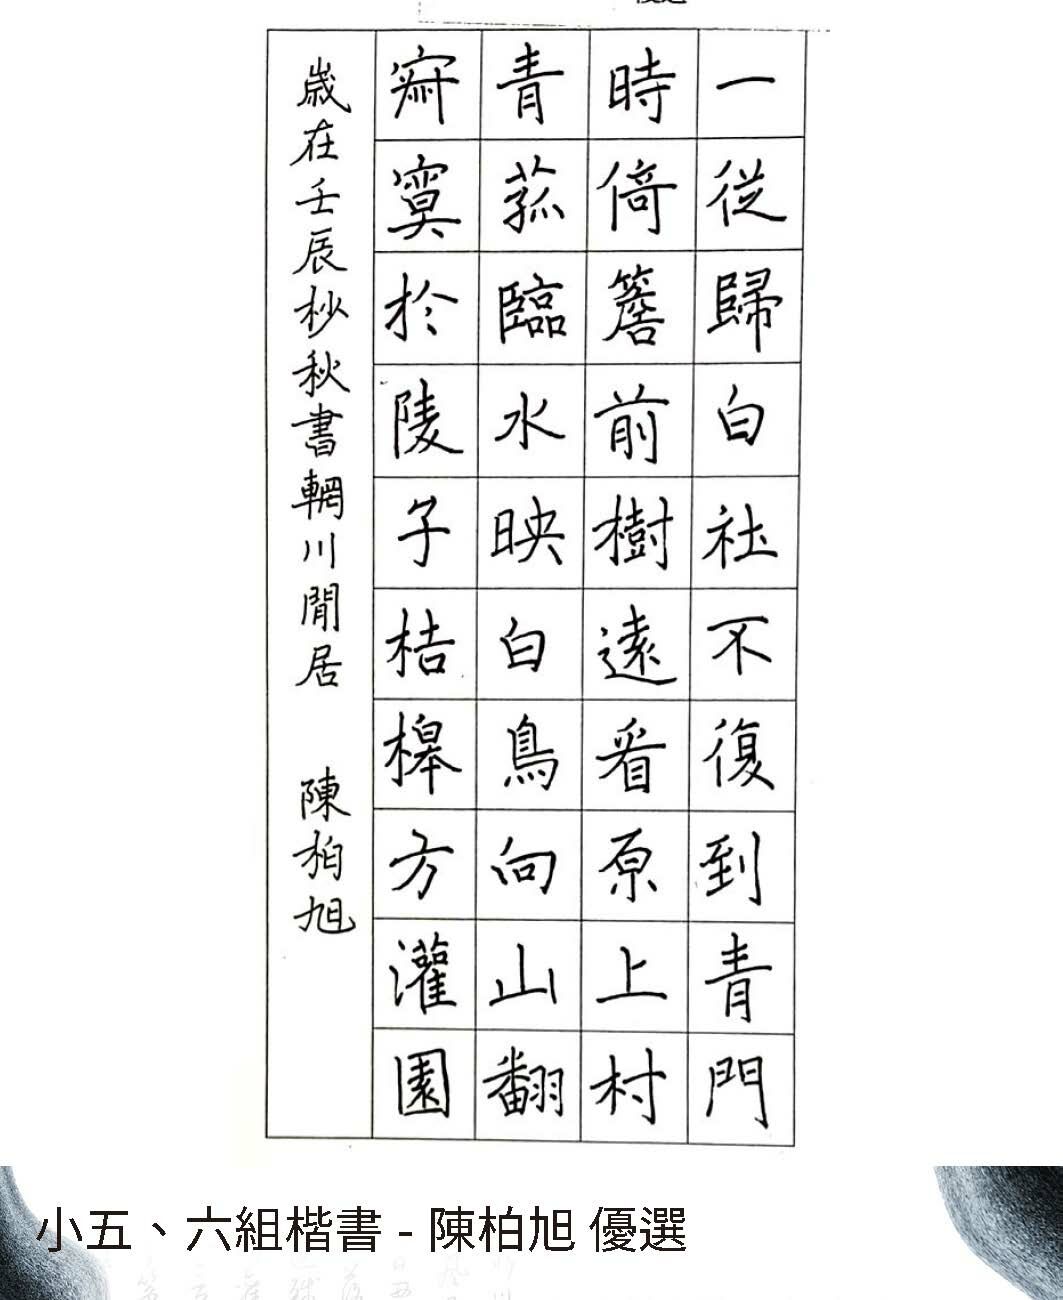 一從歸白社不復到青門
時倚簷前樹遠看原上村
青菰臨水映白鳥向山翻
寂寞於陵子桔槔方灌園
歲在壬辰杪秋書輞川閒居 陳柏旭
小五、六組楷書 - 陳柏旭 優選